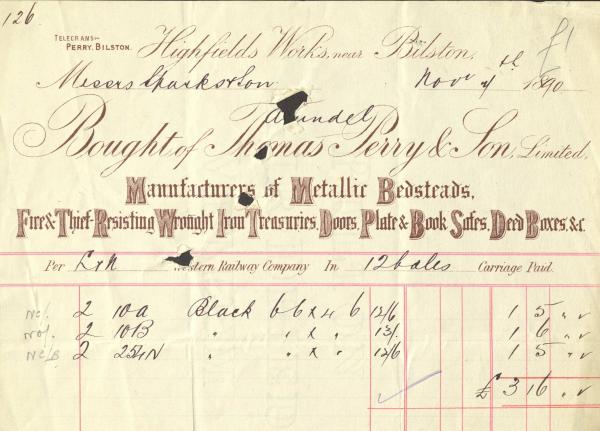 126
TELEGRAMS:-
PERRY, BILSTON.
Highfields Works, near Bilston,
Messrs Sparks & Son Novr 4th 1890
Arundel
Bought of Thomas Perry & Son, Limited.
Manufacturers of Metallic Bedsteads,
Fire & Thief-Resisting Wrought Iron Treasuries, Doors, Plate & Book Safes, Deed Boxes, &c.
Per L & N Western Railway Company In 12 bales Carriage Paid.
2 10A Black 6 6 x 4 6 12/6 1 5 " "
2 10B " " x " 13/- 1 6 " "
2 254N " " x " 12/6 1 5 " "
£ 3 16 " "